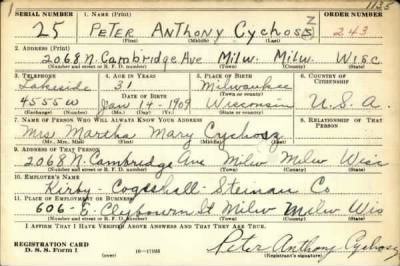 1135
SERIAL NUMBER 1. NAME (Print) ORDER NUMBER
25 PETER ANTHONY CYCHOSZ 243
(First) (Middle) (Last)
2. ADDRESS (Print)
2068 N. Cambridge Ave Milw. Milw. Wisc
(Number and street or R. F. D. number) (Town) (County) (State)
3. TELEPHONE 4. AGE IN YEARS 5. PLACE OF BIRTH 6. COUNTRY OF CITIZENSHIP
Lakeside 31 Milwaukee
DATE OF BIRTH (Town or county)
4555W Jan 14-1909 Wisconsin U.S.A.
(Exchange) (Number) (Mo.) (Day) (Yr.) (State or country)
7. NAME OF PERSON WHO WILL ALWAYS KNOW YOUR ADDRESS 8. RELATIONSHIP OF THAT PERSON
Mrs Martha Mary Cychosz
(Mr., Mrs., Miss) (First) (Middle) (Last)
9. ADDRESS OF THAT PERSON
2068 N. Cambridge Ave Milw Milw Wisc
(Number and street or R. F. D. number) (Town) (County) (State)
10. EMPLOYER'S NAME
Kirby-Cogeshall-Steinau Co
11. PLACE OF EMPLOYMENT OR BUSINESS
606-E Clybourn St Milw Milw Wis
(Number and street or R. F. D. number) (Town) (County) (State)
I AFFIRM THAT I HAVE VERIFIED ABOVE ANSWERS AND THAT THEY ARE TRUE.
REGISTRATION CARD
D. S. S. Form 1 (over) 16-17105 Peter Anthony Cychosz
(Registrant's signature)